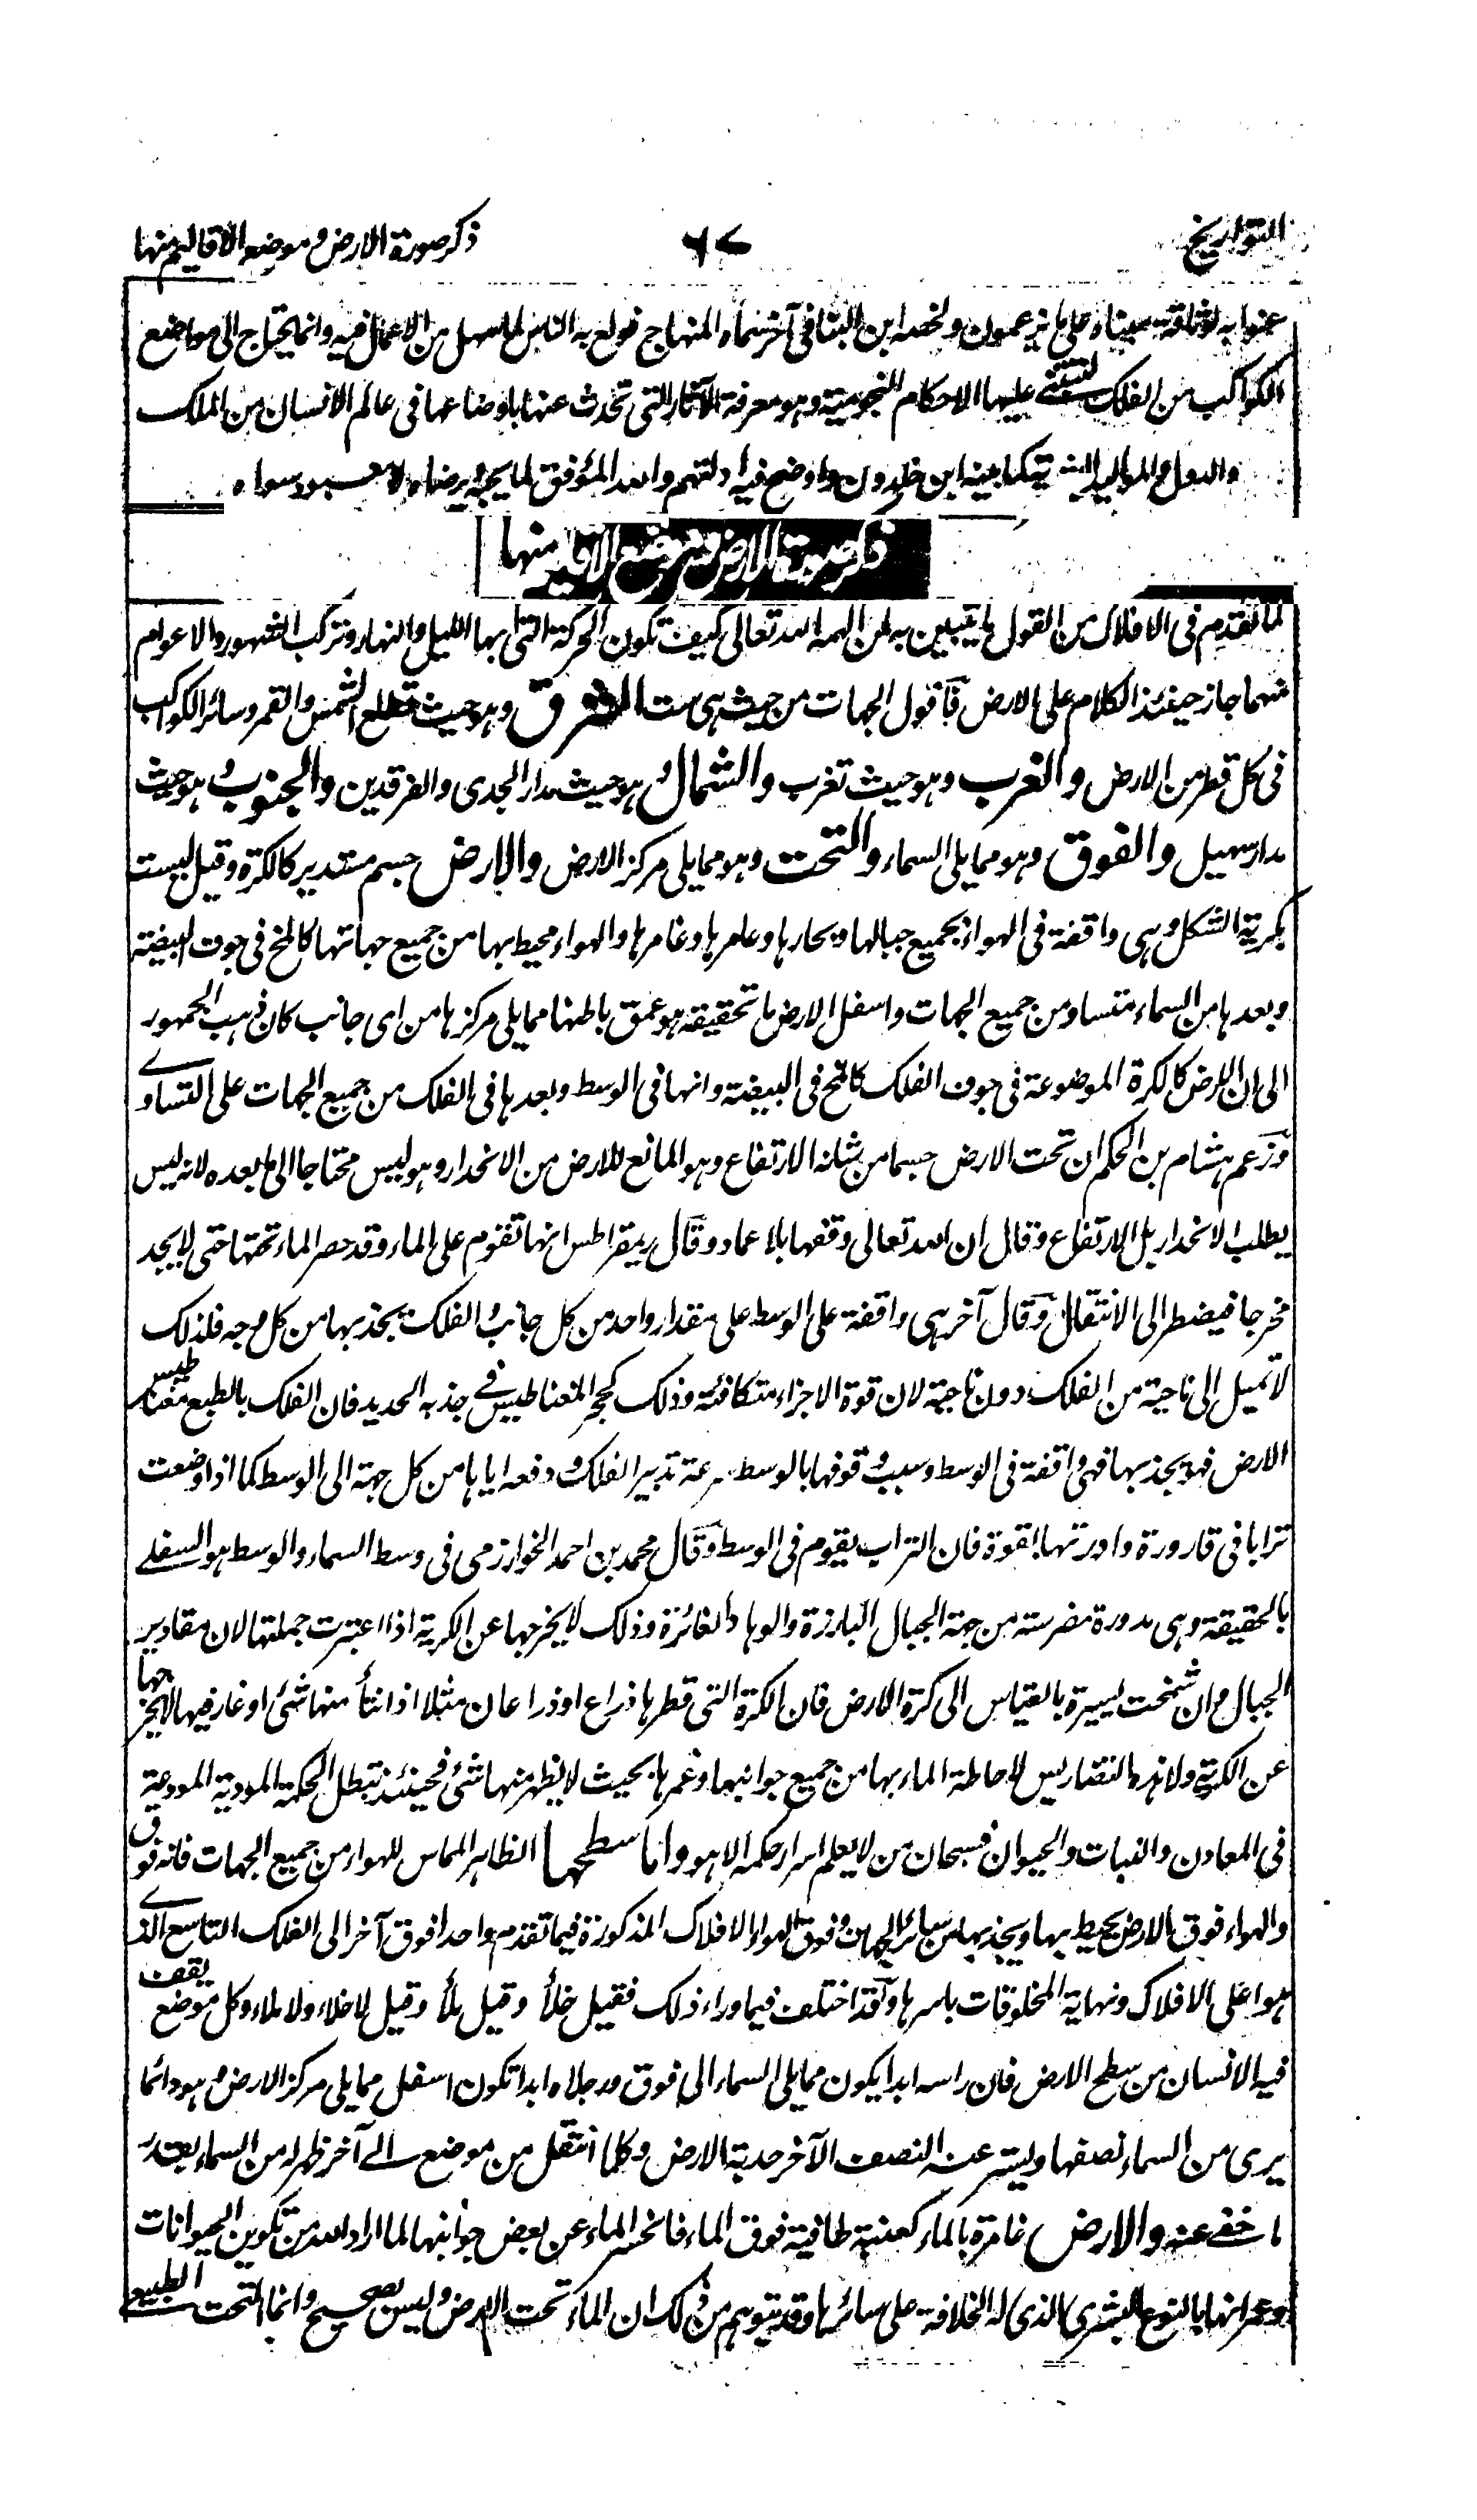 التواريخ
٦٧
ذكر صورة الارض وموضع الاقاليم منها
عنوا به لوثاقة مبناه على ما يزعمون ولخصه ابن البنا في آخر سماه المنهاج فولع به الناس لما سهل من الاعمال فيه وانما يحتاج الى مواضع
الكواكب من الفلك لتبتنى عليها الاحكام النجومية وهو معرفة الآثار التى تحدث عنها باوضاعها فى عالم الانسان من الملك
والدول والمواليد البشرية كما بينه ابن خلدون واوضح فيه ادلتهم والله الموفق لما يحبه ويرضاه لا معبود سواه
ذكر صورة الارض وموضع الاقاليم منها
لما تقدم فى الافلاك من القول ما يتبين به لمن الهمه الله تعالى كيف تكون الحركة التى بها الليل والنهار وتركب الشهور والاعوام
منهما جاز حينئذ الكلام على الارض فاقول الجهات من حيث هى ست الشرق وهو حيث تطلع الشمس والقمر وسائر الكواكب
فى كل قطر من الارض والغرب وهو حيث تغرب والشمال وهو حيث مدار الجدى والفرقدين والجنوب وهو حيث
مدار سهيل والفوق وهو مما يلى السماء والتحت وهو مما يلى مركز الارض والارض جسم مستدير كالكرة وقيل ليست
بكرية الشكل وهى واقفة فى الهواء بجميع جبالها وبحارها وعامرها وغامرها والهواء محيط بها من جميع جهاتها كالمخ فى جوف البيضة
وبعدها من السماء متساو من جميع الجهات واسفل الارض ما تحقيقه هو عمق باطنها مما يلى مركزها من اى جانب كان ذهب الجمهور
الى ان الارض كالكرة الموضوعة فى جوف الفلك كالمخ فى البيضة وانها فى الوسط وبعدها فى الفلك من جميع الجهات على التساوى
وزعم هشام بن الحكم ان تحت الارض جسما من شانه الارتفاع وهو المانع للارض من الانحدار وهو ليس محتاجا الى ما بعده لانه ليس
يطلب الانحدار بل الارتفاع وقال ان الله تعالى وقفها بلا عماد وقال ديمقراطس انها تقوم على الماء وقد حصر الماء تحتها حتى لا يجد
مخرجا فيضطر الى الانتقال وقال آخر هى واقفة على الوسط على مقدار واحد من كل جانب والفلك يجذبها من كل وجه فلذلك
لا تميل الى ناحية من الفلك دون ناحية لان قوة الاجزاء متكافئة وذلك كحجر المغناطيس فى جذبه الحديد فان الفلك بالطبع مغناطيس
الارض فهو يجذبها فهى واقفة فى الوسط وسبب وقوفها بالوسط سرعة تدبير الفلك ودفعه اياها من كل جهة الى الوسط كما اذا وضعت
ترابا فى قارورة وادرتها بقوة فان التراب يقوم فى الوسط وقال محمد بن احمد الخوارزمى فى وسط السماء والوسط هو السفلى
بالحقيقة وهى مدورة مضرسة من جهة الجبال البارزة والوهاد الغائرة وذلك لا يخرجها عن الكرية اذا اعتبرت جملتها لان مقادير
الجبال وان شمخت يسيرة بالقياس الى كرة الارض فان الكرة التى قطرها ذراع او ذراعان مثلا اذا نتأ منها شئ او غار فيها لا يخرجها
عن الكرية ولا هذه التضاريس لاحاطة الماء بها من جميع جوانبها وغمرها بحيث لا يظهر منها شئ فحينئذ تبطل الحكمة المودية المودعة
فى المعادن والنبات والحيوان فسبحان من لا يعلم اسرار حكمه الا هو واما سطحها الظاهر المماس للهواء من جميع الجهات فانه فوق
والهواء فوق الارض يحيط بها ويجذبها من سائر الجهات وفوق الهواء الافلاك المذكورة فيما تقدم واحدا فوق آخر الى الفلك التاسع الذى
هو اعلى الافلاك ونهاية المخلوقات باسرها وقد اختلف فيما وراء ذلك فقيل خلأ وقيل ملأ وقيل لا خلاء ولا ملاء وكل موضع يقف
فيه الانسان من سطح الارض فان راسه ابدا يكون مما يلى السماء الى فوق ورجلاه ابدا تكون اسفل مما يلى مركز الارض وهو دائما
يرى من السماء نصفها ويستر عنه النصف الآخر حدبة الارض وكلما انتقل من موضع الى آخر ظهر له من السماء بقدر
ما خفى عنه والارض غامرة بالماء كعنبة طافية فوق الماء فانحسر الماء عن بعض جوانبها لما اراد الله من تكوين الحيوانات
وعمرانها بالنوع البشرى الذى له الخلافة على سائرها وقد يتوهم من ذلك ان الماء تحت الارض وليس بصحيح وانما التحت الطبيعى